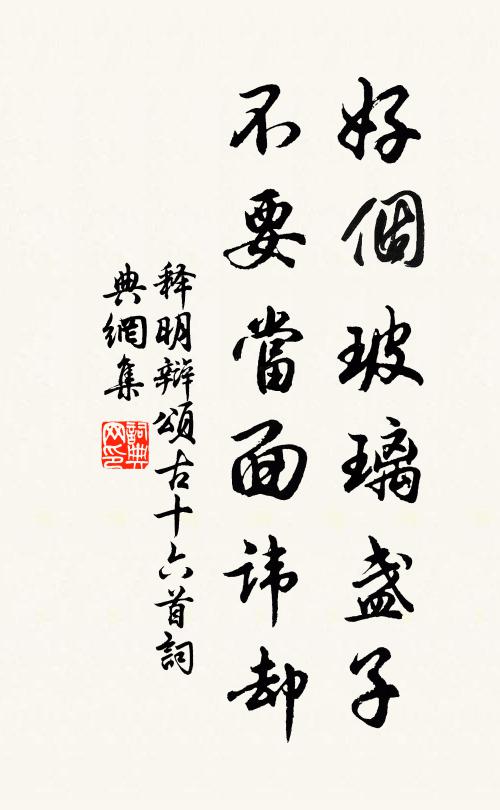 好個玻璃盞子
不要當面諱却
释明辯頌古十六首詞
典網集
詞典
网印